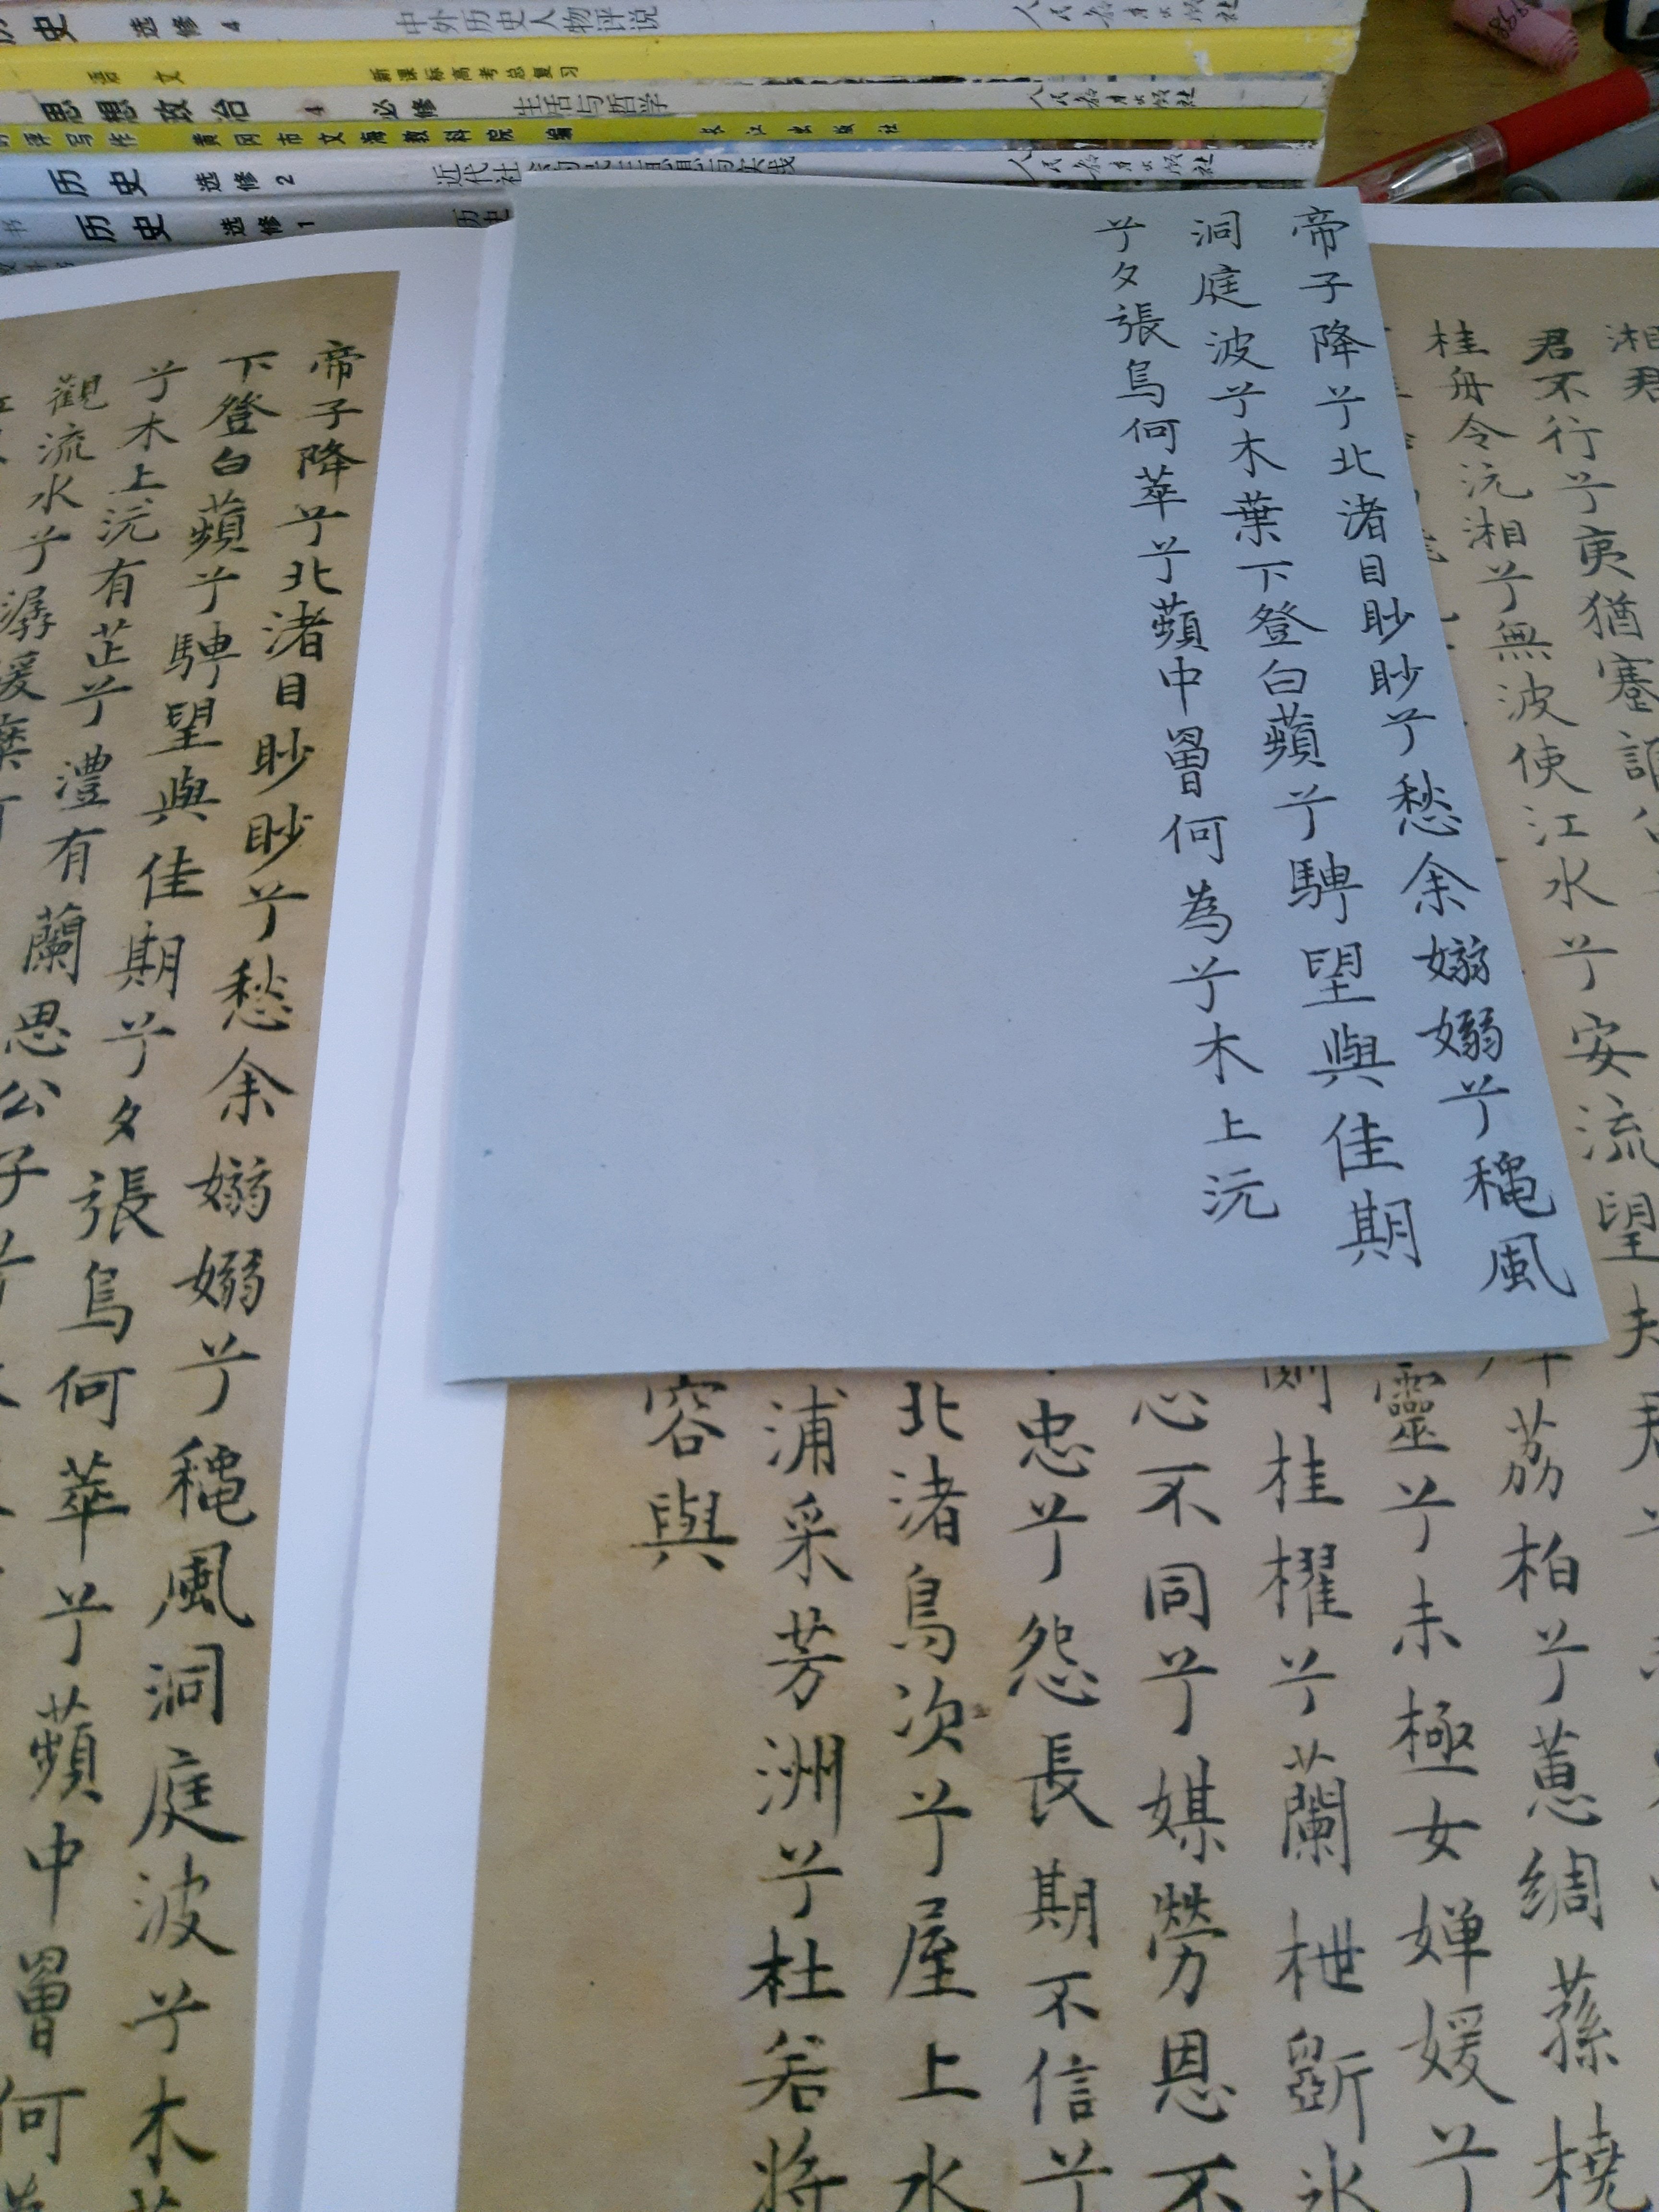 历史 选修4 中外历史人物评说 人民教育出版社
语文 新课标高考总复习
思想政治 4 必修 生活与哲学 人民教育出版社
写作 黄冈市文海教科院 编 长江出版社
历史 选修2 近代社 人民教育出版社
历史 选修1 历史
帝子降兮北渚目眇眇兮愁余嫋嫋兮穐風
洞庭波兮木葉下登白蘋兮騁望與佳期
兮夕張鳥何萃兮蘋中曾何為兮木上沅
湘君
君不行兮夷猶蹇誰
桂舟令沅湘兮無波使江水兮安流望夫君兮
荔柏兮蕙綢蓀橈
靈兮未極女嬋媛兮
側桂櫂兮蘭枻斲冰
心不同兮媒勞恩不
忠兮怨長期不信兮
北渚鳥次兮屋上水
浦采芳洲兮杜若將
容與
帝子降兮北渚目眇眇兮愁余嫋嫋兮穐風洞庭波兮木葉
下登白蘋兮騁望與佳期兮夕張鳥何萃兮蘋中曾何為
兮木上沅有芷兮澧有蘭思公子兮
觀流水兮潺湲麋何